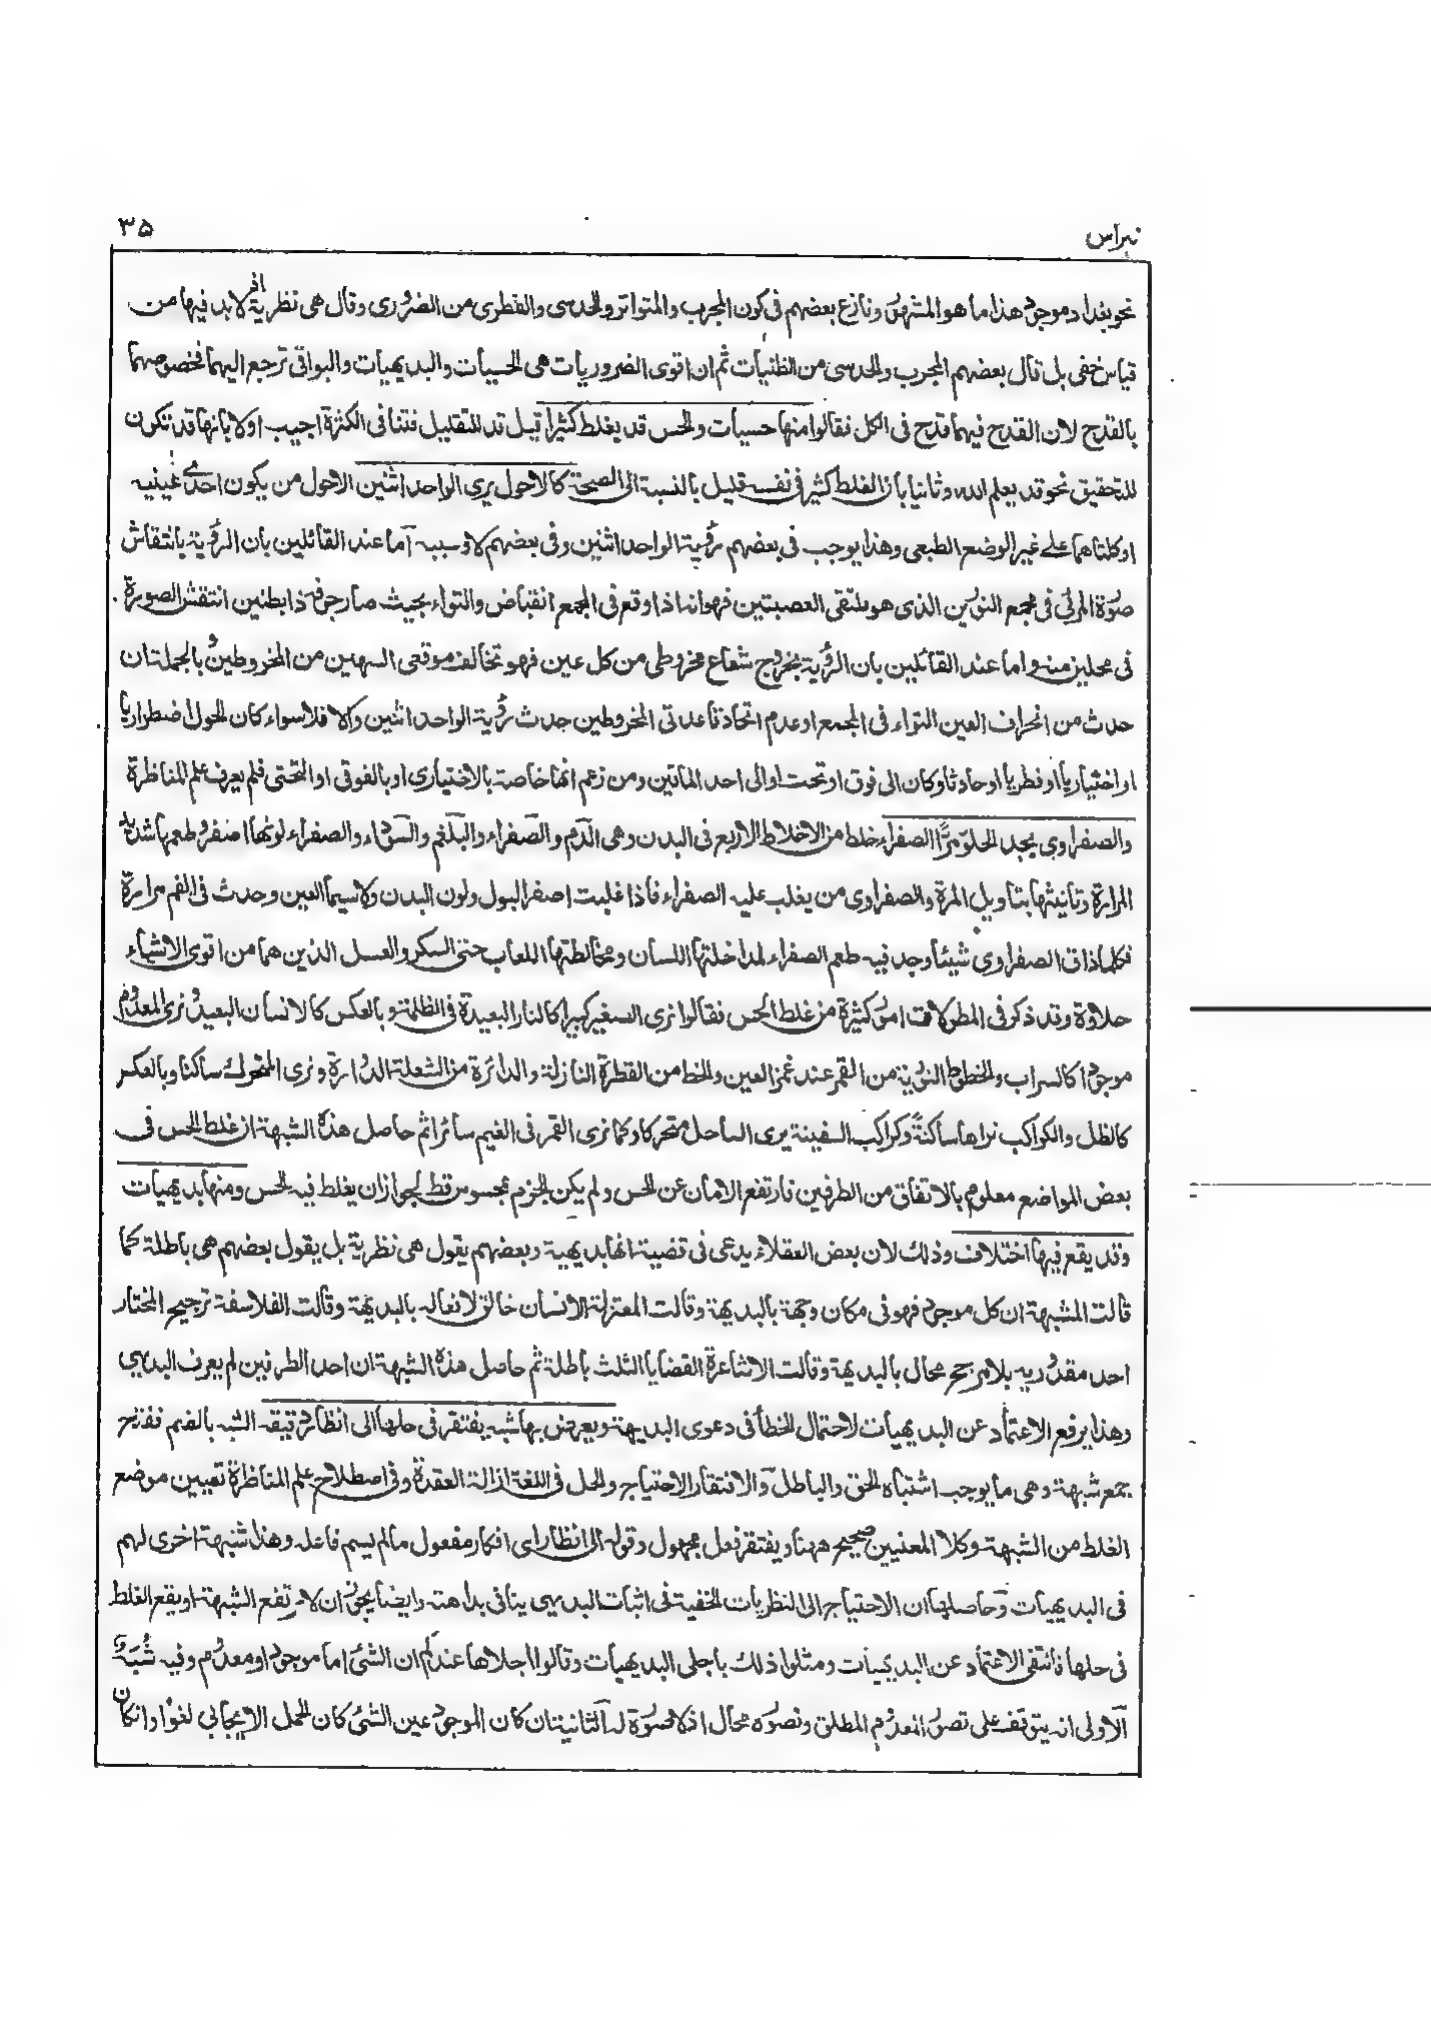 نبراس ٣٥
نحو بغداد موجود هذا ما هو المشهور ونازع بعضهم فى كون المجرب والمتواتر والحدسى والفطرى من الضرورى وقال هى نظرية لابد فيها من
قياس خفى بل قال بعضهم المجرب والحدسى من الظنيات ثم ان اقوى الضروريات هى الحسيات والبديهيات والبواقى ترجع اليهما فخصوصهما
بالقدح لان القدح فيهما قدح فى الكل فقالوا منها حسيات والحس قد يغلط كثيرا قيل قد للتقليل فتنافى الكثرة اجيب اولا بانها قد تكون
للتحقيق نحو قد يعلم الله وثانيا بان الغلط كثير فى نفسه قليل بالنسبة الى الصحة كالاحول يرى الواحد اثنين الاحول من يكون احدى عينيه
او كلتاهما على غير الوضع الطبعى وهذا يوجب فى بعضهم رؤية الواحد اثنين وفى بعضهم لا وسببه آما عند القائلين بان الرؤية بانتقاش
صورة المرئى فى مجمع النورين الذى هو ملتقى العصبتين فهو انه اذا وقع فى المجمع انقباض والتواء بحيث صار جوفه ذا بطنين انتقش الصورة
فى محلين منه واما عند القائلين بان الرؤية بخروج شعاع مخروطى من كل عين فهو تخالف موقعى السهمين من المخروطين وبالجملة ان
حدث من انحراف العين التواء فى المجمع او عدم اتحاد قاعدتى المخروطين حدث رؤية الواحد اثنين والا فلا سواء كان الحول اضطراريا
او اختياريا او فطريا او حادثا وكان الى فوق او تحت او الى احد الماقين ومن زعم انها خاصة بالاختيارى او بالفوقى او التحتى فلم يعرف علم المناظرة
والصفراوى يجد الحلو مرًّا الصفراء خلط من الاخلاط الاربع فى البدن وهى الدم والصفراء والبلغم والسوداء والصفراء لونها اصفر وطعمها شديد
المرارة وتانيثها بتاويل المرة والصفراوى من يغلب عليه الصفراء فاذا غلبت اصفر البول ولون البدن ولاسيما العين وحدث فى الفم مرارة
فكلما ذاق الصفراوى شيئا وجد فيه طعم الصفراء لمداخلتها اللسان ومخالطتها اللعاب حتى السكر والعسل الذين هما من اقوى الاشياء
حلاوة وقد ذكر فى المطولات امور كثيرة من غلط الحس فقالوا نرى الصغير كبيرا كالنار البعيدة فى الظلمة وبالعكس كالانسان البعيد ونرى المعدوم
موجودا كالسراب والخطوط النورية من القمر عند غمز العين والخط من القطرة النازلة والدائرة من الشعلة الدوارة ونرى المتحرك ساكنا وبالعكس
كالظل والكواكب نراها ساكنةً وكراكب السفينة يرى الساحل متحركا وكما نرى القمر فى الغيم سائرا ثم حاصل هذه الشبهة ان غلط الحس فى
بعض المواضع معلوم بالاتفاق من الطرفين فارتفع الامان عن الحس ولم يكن الجزم بمحسوس قط لجواز ان يغلط فيه الحس ومنها بديهيات
وقد يقع فيها اختلاف وذلك لان بعض العقلاء يدعى فى قضية انها بديهية وبعضهم يقول هى نظرية بل يقول بعضهم هى باطلة كما
قالت المشبهة ان كل موجود فهو فى مكان وجهة بالبديهة وقالت المعتزلة الانسان خالق لافعاله بالبديهة وقالت الفلاسفة ترجيح المختار
احد مقدوريه بلا مرجح محال بالبديهة وقالت الاشاعرة القضايا الثلث باطلة ثم حاصل هذه الشبهة ان احد الطرفين لم يعرف البديهى
وهذا يرفع الاعتماد عن البديهيات لاحتمال الخطأ فى دعوى البديهة ويعرض بها شبه يفتقر فى حلها الى انظار دقيقة الشبه بالضم ففتح
جمع شبهة وهى ما يوجب اشتباه الحق والباطل وآلافتقار الاحتياج والحل فى اللغة ازالة العقدة وفى اصطلاح علم المناظرة تعيين موضع
الغلط من الشبهة وكلا المعنيين صحيح ههنا ويفتقر فعل مجهول وقوله الى انظار اى افكار مفعول مالم يسم فاعله وهذا شبهة اخرى لهم
فى البديهيات وحاصلها ان الاحتياج الى النظريات الخفية فى اثبات البديهى ينافى بداهته وايضا يجوز ان لا يرتفع الشبهة او يقع الغلط
فى حلها فانتفى الاعتماد عن البديهيات ومثلوا ذلك باجلى البديهيات وقالوا اجلاها عندكم ان الشئ اما موجود او معدوم وفيه شُبَهٌ
الآولى انه يتوقف على تصور المعدوم المطلق وتصوره محال اذ لا صورة له الثانية ان كان الموجود عين الشئ كان الحمل الايجابى لغوا وان كان